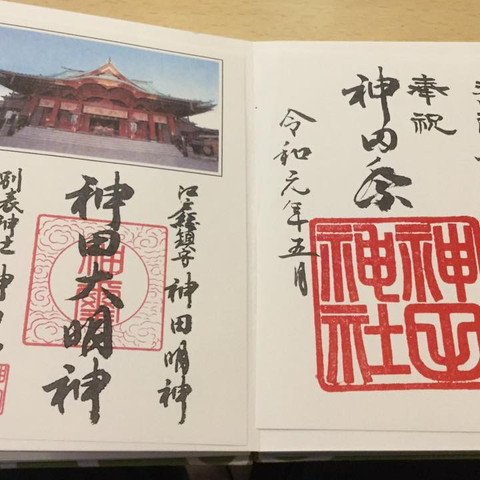 奉祝
神田祭
令和元年五月
神田神社
江戸総鎮守 神田明神
神田大明神
別表神社 神田